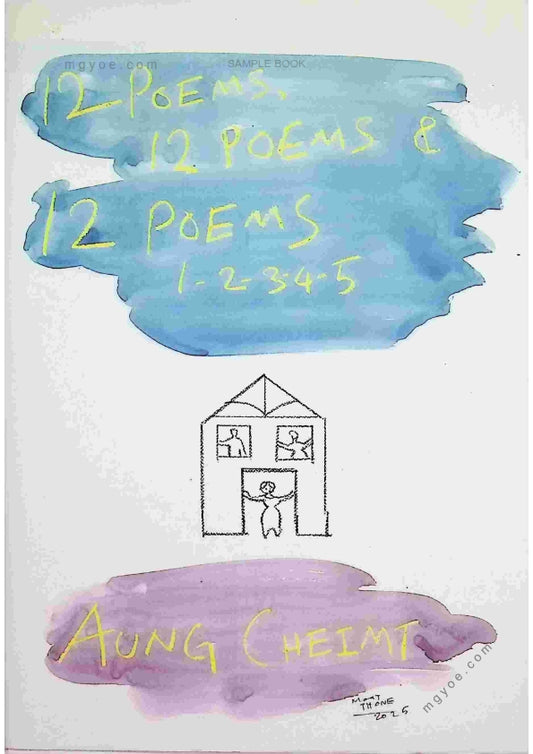 mgyoe.com SAMPLE BOOK
12 POEMS,
12 POEMS &
12 POEMS
1-2-3-4-5
AUNG CHEIMT
MOUT
THONE
2025
mgyoe.com